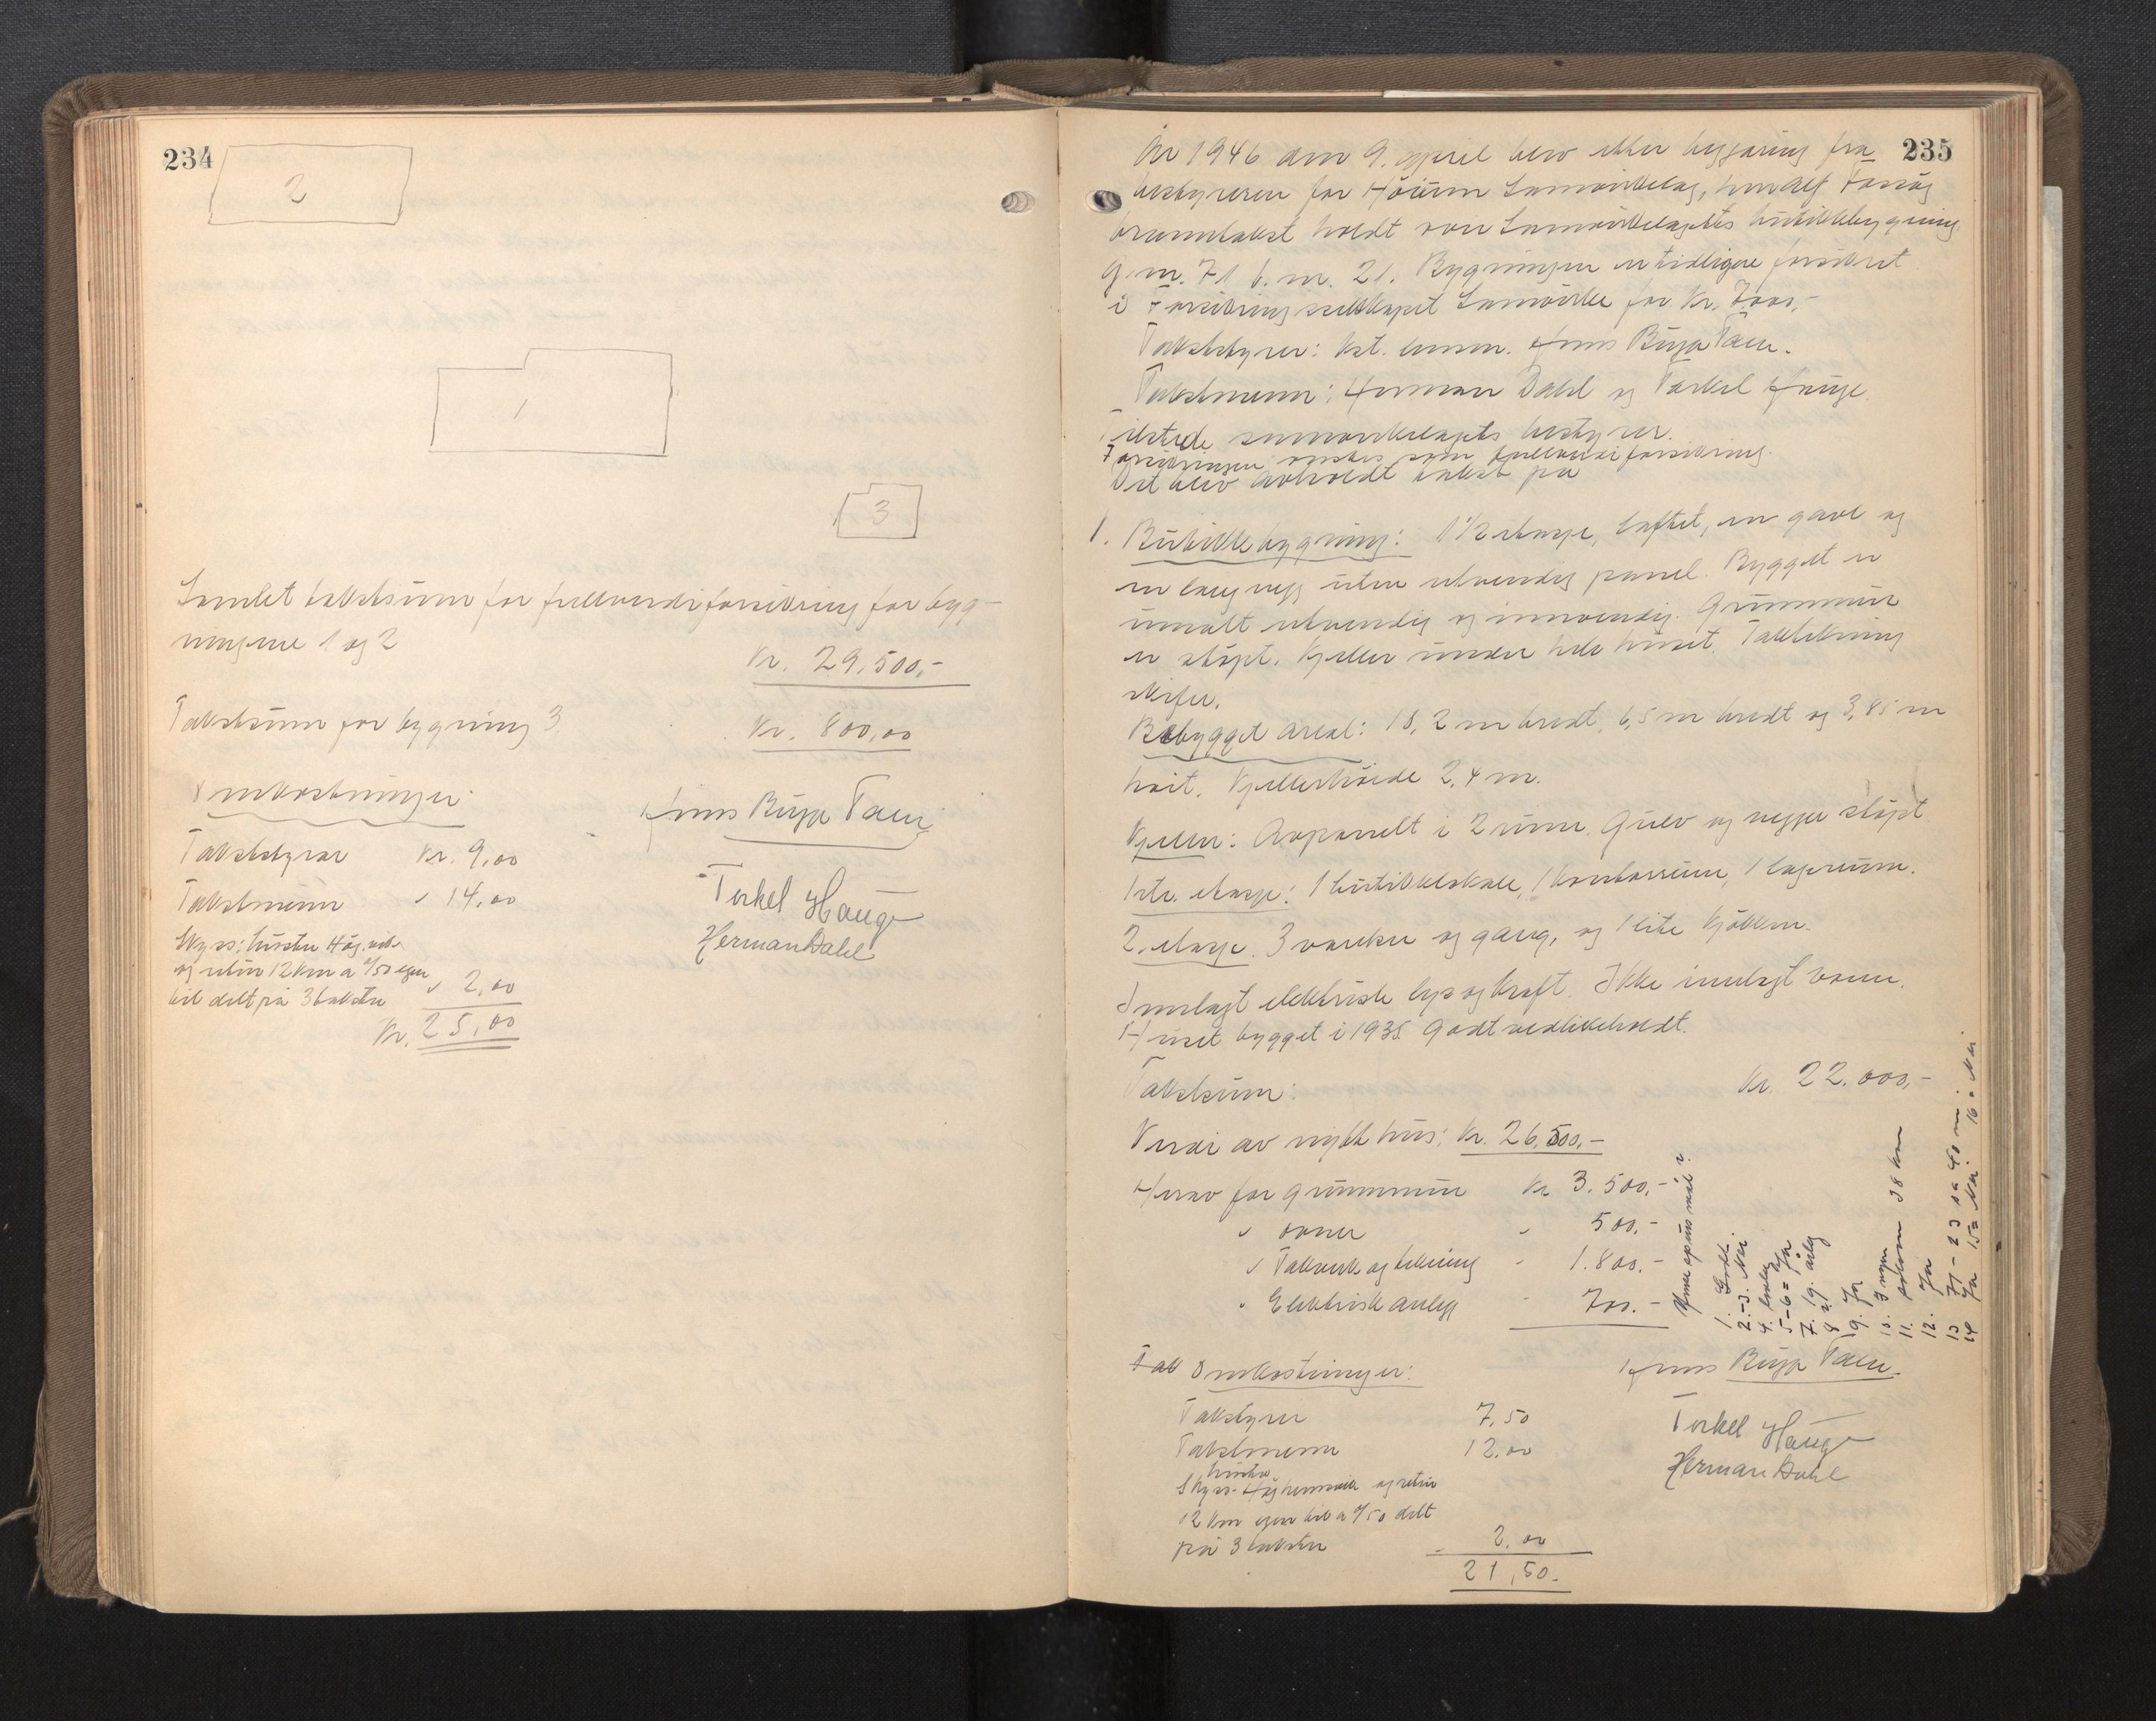 234
2
1
3
Samlet takstsum for fullverdiforsikring for byg-
ningene 1 og 2
Kr. 29.500,-
Takstsum for bygning 3
Kr. 800,00
Omkostninger:
Takststyrer Kr. 9,00
Takstmenn " 14,00
Skyss:
og retur 12 km a 0/50 egen
bil delt på 3 takster " 2,00
Kr. 25,00
Jens Birger Taen
Torkel Hauge
Herman Dahl
235
År 1946 den 9. april blev etter begjæring fra
bestyreren for Samvirkelag,
branntakst holdt over Samvirkelagets butikkbygning
G. nr. 71 b. nr. 21. Bygningen er tidligere forsikret
i Forsikringsselskapet Samvirke for Kr. 7000,-
Takststyrer: Kst. lensm. Jens Birger Taen.
Takstmenn: Herman Dahl og Torkel Hauge.
Tilstede samvirkelagets bestyrer.
Forsikringen ønskes som fullverdiforsikring.
Det blev avholdt takst på
1. Butikkbygning: 1 1/2 etasje, laftet, en gavl og
en langvegg uten utvendig panel. Bygget er
umalt utvendig og innvendig. Grunnmur
er støpt. Kjeller under hele huset. Taktekning
skifer.
Bebygget areal: 18,2 m bredt, 6,5 m bredt og 3,85 m
høit. Kjellerhøide 2,4 m.
Kjeller: Avpanelt i 2 rum. Gulv og vegger støpt.
1ste etasje: 1 butikklokale, 1 kontorrum, 1 lagerrum.
2. etasje. 3 værelser og gang, og 1 lite kjøkken.
Innlagt elektrisk lys og kraft. Ikke innlagt vann.
Huset bygget i 1935. Godt vedlikeholdt.
Takstsum: Kr. 22.000,-
Verdi av nytt hus: Kr. 26.500,-
Herav for grunnmur Kr 3.500,-
" ovner " 500,-
" Takverk og tekning " 1.800,-
" Elektrisk anlegg " 700.-
1. Godt.
2.-3. Nei
5-6 = Ja
9. Ja
10. Ingen
11. 38 km
12. Ja
14 Ja 15= Nei 16= Nei.
Tak Omkostninger:
Takstyrer 7,50
Takstmenn 12,00
12 km egen bil a 0/50 delt
på 3 takster - 2,00
21,50-
Jens Birger Taen.
Torkel Hauge
Herman Dahl